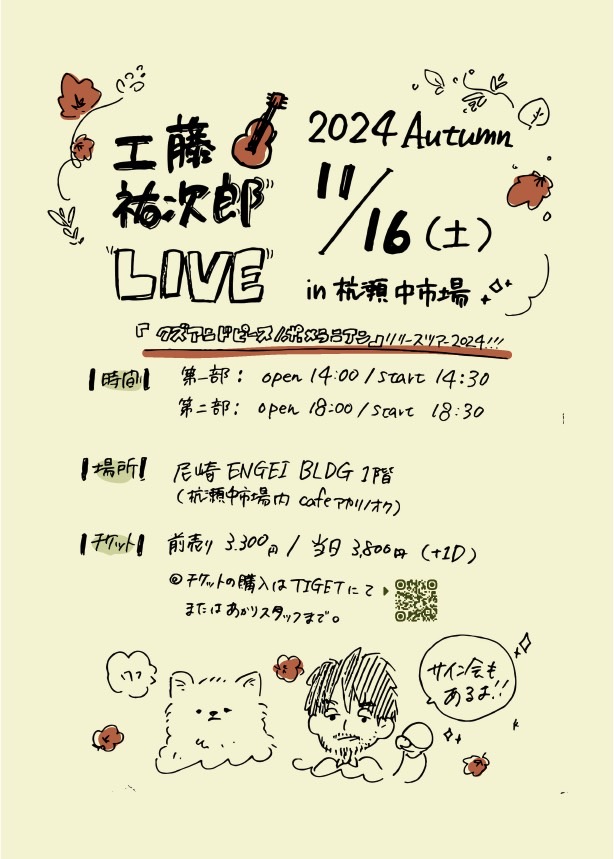 工藤
祐次郎
LIVE
2024 Autumn
11/16(土)
in 杭瀬中市場
『クズアンドピース/ポメラニアン』リリースツアー2024!!!
時間
第一部: open 14:00 / start 14:30
第二部: open 18:00 / start 18:30
場所
尼崎 ENGEI BLDG 1階
(杭瀬中市場内 cafeアカリノオク)
チケット
前売り 3.300円 / 当日 3,800円 (+1D)
◎チケットの購入はTIGETにて
またはあかりスタッフまで。
ワワ
サイン会も
あるよ!!